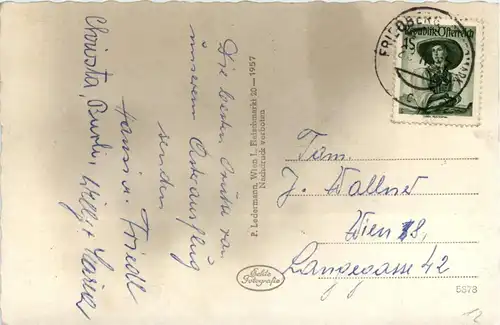 Die besten Grüße von
unserem Osterausflug
senden
Hanni u. Friedl
Christa, Burli, Willy +
P. Ledermann, Wien I., Fleischmarkt 20 — 1957
Nachdruck verboten
Echte
Fotografie
FRIEDBERG
Republik Österreich
Fam.
J. Wallner
Wien 18,
Langegasse 42
5878
12